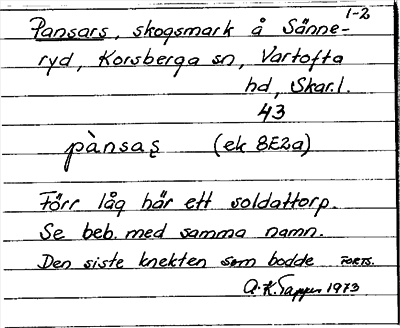 1-2
Pansars, skogsmark å Sänne-
ryd, Korsberga sn, Vartofta
hd, Skar.l.
43
pànsaʂ (ek 8E2a)
Förr låg här ett soldattorp.
Se beb. med samma namn.
Den siste knekten som bodde FORTS.
A.K. Tapper 1973